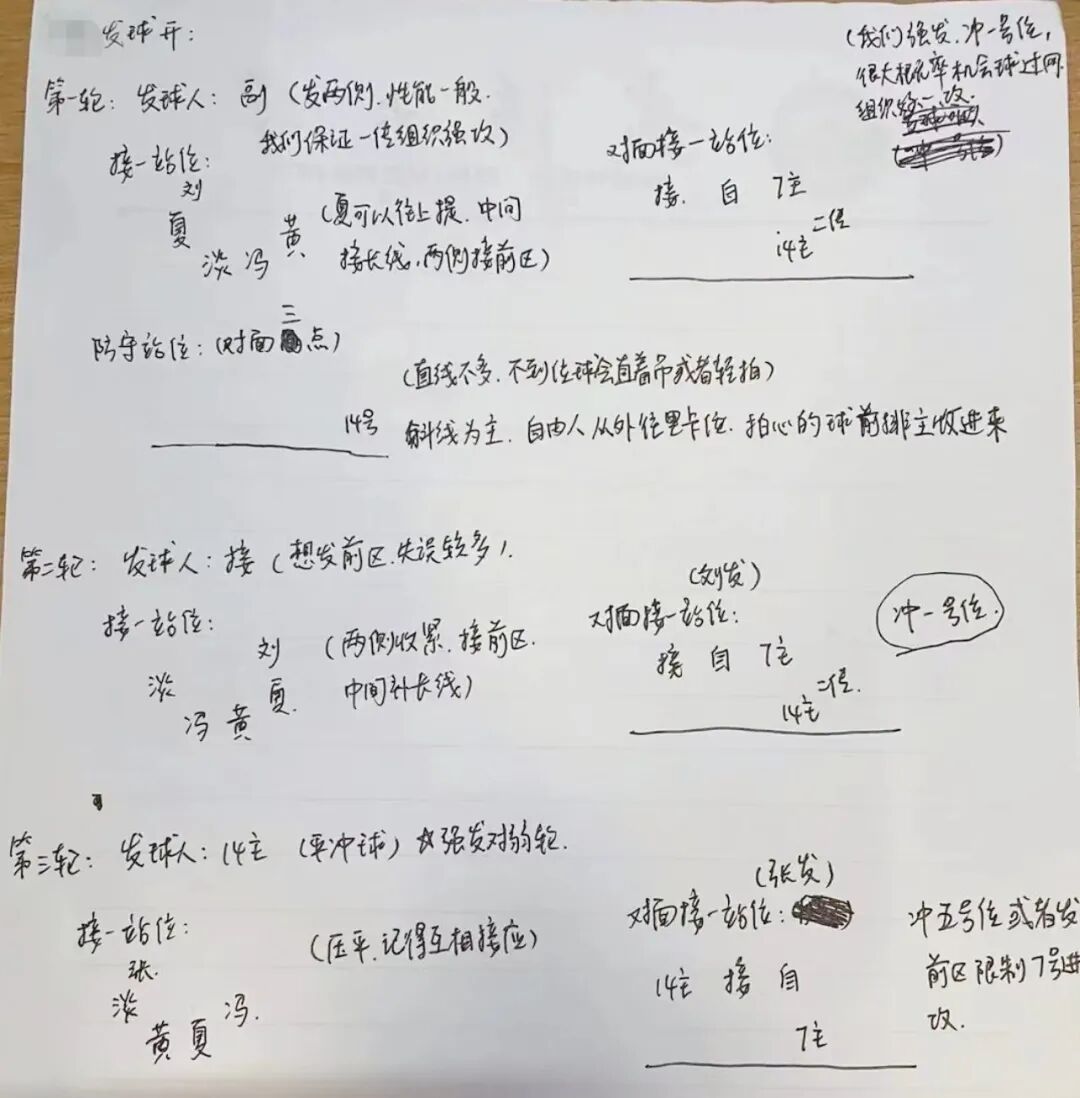 发球开:
(我们强发.冲一号位,
很大概率机会球过网
组织一攻.
第一轮: 发球人: 副 (发两侧.性能一般.
我们保证一传组织强攻)
接一站位:
刘
夏 黄
淡 冯
(夏可以往上提.中间
接长线.两侧接前区)
对面接一站位:
接. 自 7主
二传
14主
防守站位: (对面三点)
14号
(直线不多.不到位球会直着吊或者轻拍)
斜线为主.自由人从外往里卡位.拍心的球前排主收进来
第二轮: 发球人: 接 (想发前区.失误较多).
接一站位:
刘
淡 夏.
冯 黄
(两侧收紧.接前区.
中间补长线)
(刘发)
对面接一站位:
接 自 7主
二传.
14主
冲一号位.
第三轮: 发球人: 14主 (平冲球) ☆强发对弱轮.
接一站位:
张.
淡 冯.
黄 夏
(压平.记得互相接应)
(张发)
对面接一站位:
14主 接 自
7主
冲五号位或者发
前区限制7号进
攻.